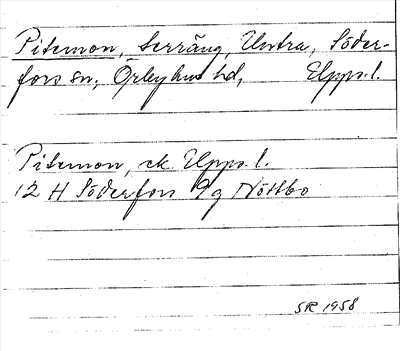 Pitemon, terräng, Untra, Söder-
fors sn, Örbyhus hd, Upps. l.
Pitemon, ek. Upps. l.
12 H Söderfors 9g Nöttbo
SR 1958